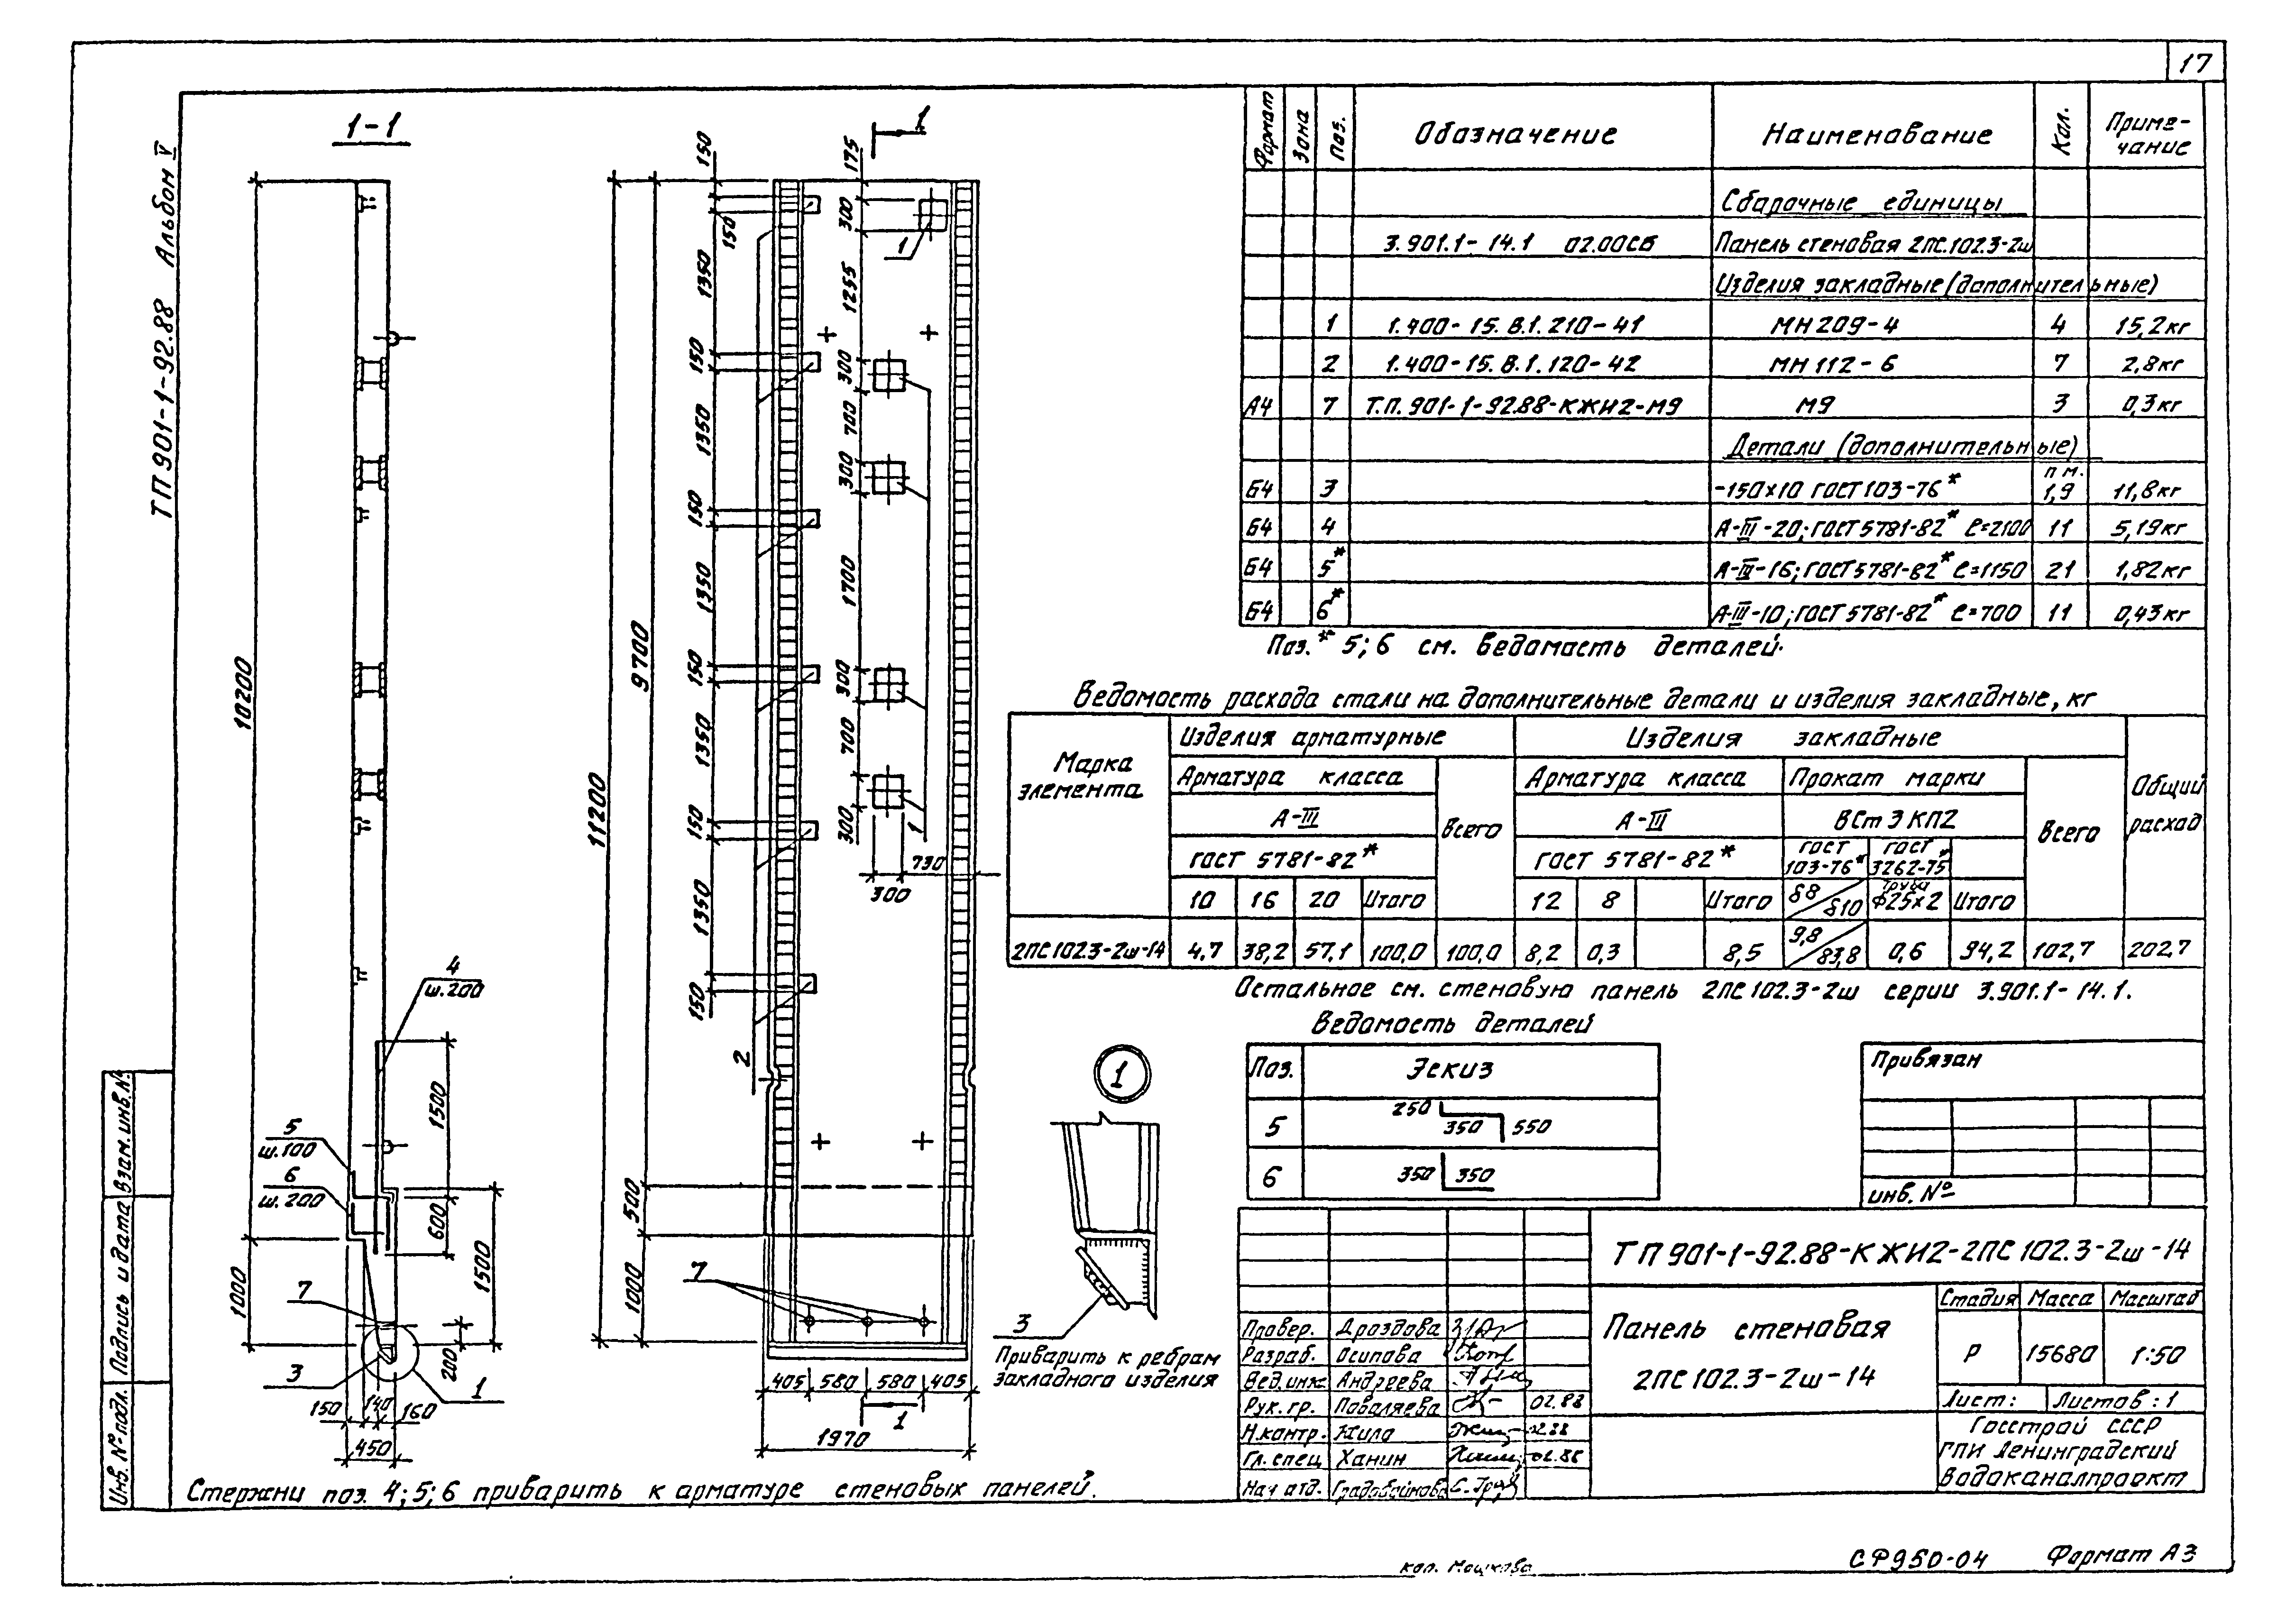 17
ТП 901-1-92.88 Альбом V
1-1
10200
1000
4
ш.200
5
ш.100
6
ш.200
7
3
1
1500
600
1500
200
150
140
160
450
11200
9700
500
1000
150
150
1350
150
1350
150
1350
150
1350
150
1350
150
2
1
175
300
1
1255
300
700
300
1700
300
700
300
1
730
300
7
405
580
580
405
1
1970
1
3
Приварить к ребрам
закладного изделия
Стержни поз. 4; 5; 6 приварить к арматуре стеновых панелей.
Формат Зона Поз. Обозначение Наименование Кол. Приме-
чание
Сборочные единицы
3.901.1-14.1 02.00СБ Панель стеновая 2ПС.102.3-2ш
Изделия закладные (дополнительные)
1 1.400-15.В.1.210-41 МН 209-4 4 15,2кг
2 1.400-15.В.1.120-42 МН 112-6 7 2,8кг
А4 7 Т.П. 901-1-92.88-КЖИ2-М9 М9 3 0,3кг
Детали (дополнительные)
п.м.
Б4 3 -150×10 ГОСТ 103-76* 1,9 11,8кг
Б4 4 А-III-20; ГОСТ 5781-82* ℓ=2100 11 5,19кг
Б4 5* А-III-16; ГОСТ 5781-82* ℓ=1150 21 1,82кг
Б4 6* А-III-10; ГОСТ 5781-82* ℓ=700 11 0,43кг
Поз.* 5; 6 см. ведомость деталей.
Ведомость расхода стали на дополнительные детали и изделия закладные, кг
Марка
элемента
Изделия арматурные Изделия закладные
Общий
расход
Арматура класса Всего Арматура класса Прокат марки Всего
А-III А-III ВСт 3 КП2
ГОСТ 5781-82* ГОСТ 5781-82* ГОСТ 103-76* ГОСТ 3262-75*
10 16 20 Итого 12 8 Итого δ8/δ10 Труба Ф25×2 Итого
2ПС102.3-2ш-14 4,7 38,2 57,1 100,0 100,0 8,2 0,3 8,5 9,8/83,8 0,6 94,2 102,7 202,7
Остальное см. стеновую панель 2ПС 102.3-2ш серии 3.901.1-14.1.
Ведомость деталей
Поз. Эскиз
5 250 350 550
6 350 350
Привязан
инв. №
ТП 901-1-92.88-КЖИ2-2ПС 102.3-2ш-14
Панель стеновая
2ПС 102.3-2ш-14
Стадия Масса Масштаб
Р 15680 1:50
Лист: Листов: 1
Госстрой СССР
ГПИ Ленинградский
Водоканалпроект
Провер. Дроздова
Разраб. Осипова
Вед. инж. Андреева
Рук. гр. Поваляева 02.88
Н.контр. Жила
Гл. спец. Ханин
Нач отд. Градобойнова
Инв. № подл. Подпись и дата Взам. инв. №
кол. Мошкова
СФ950-04 Формат А3